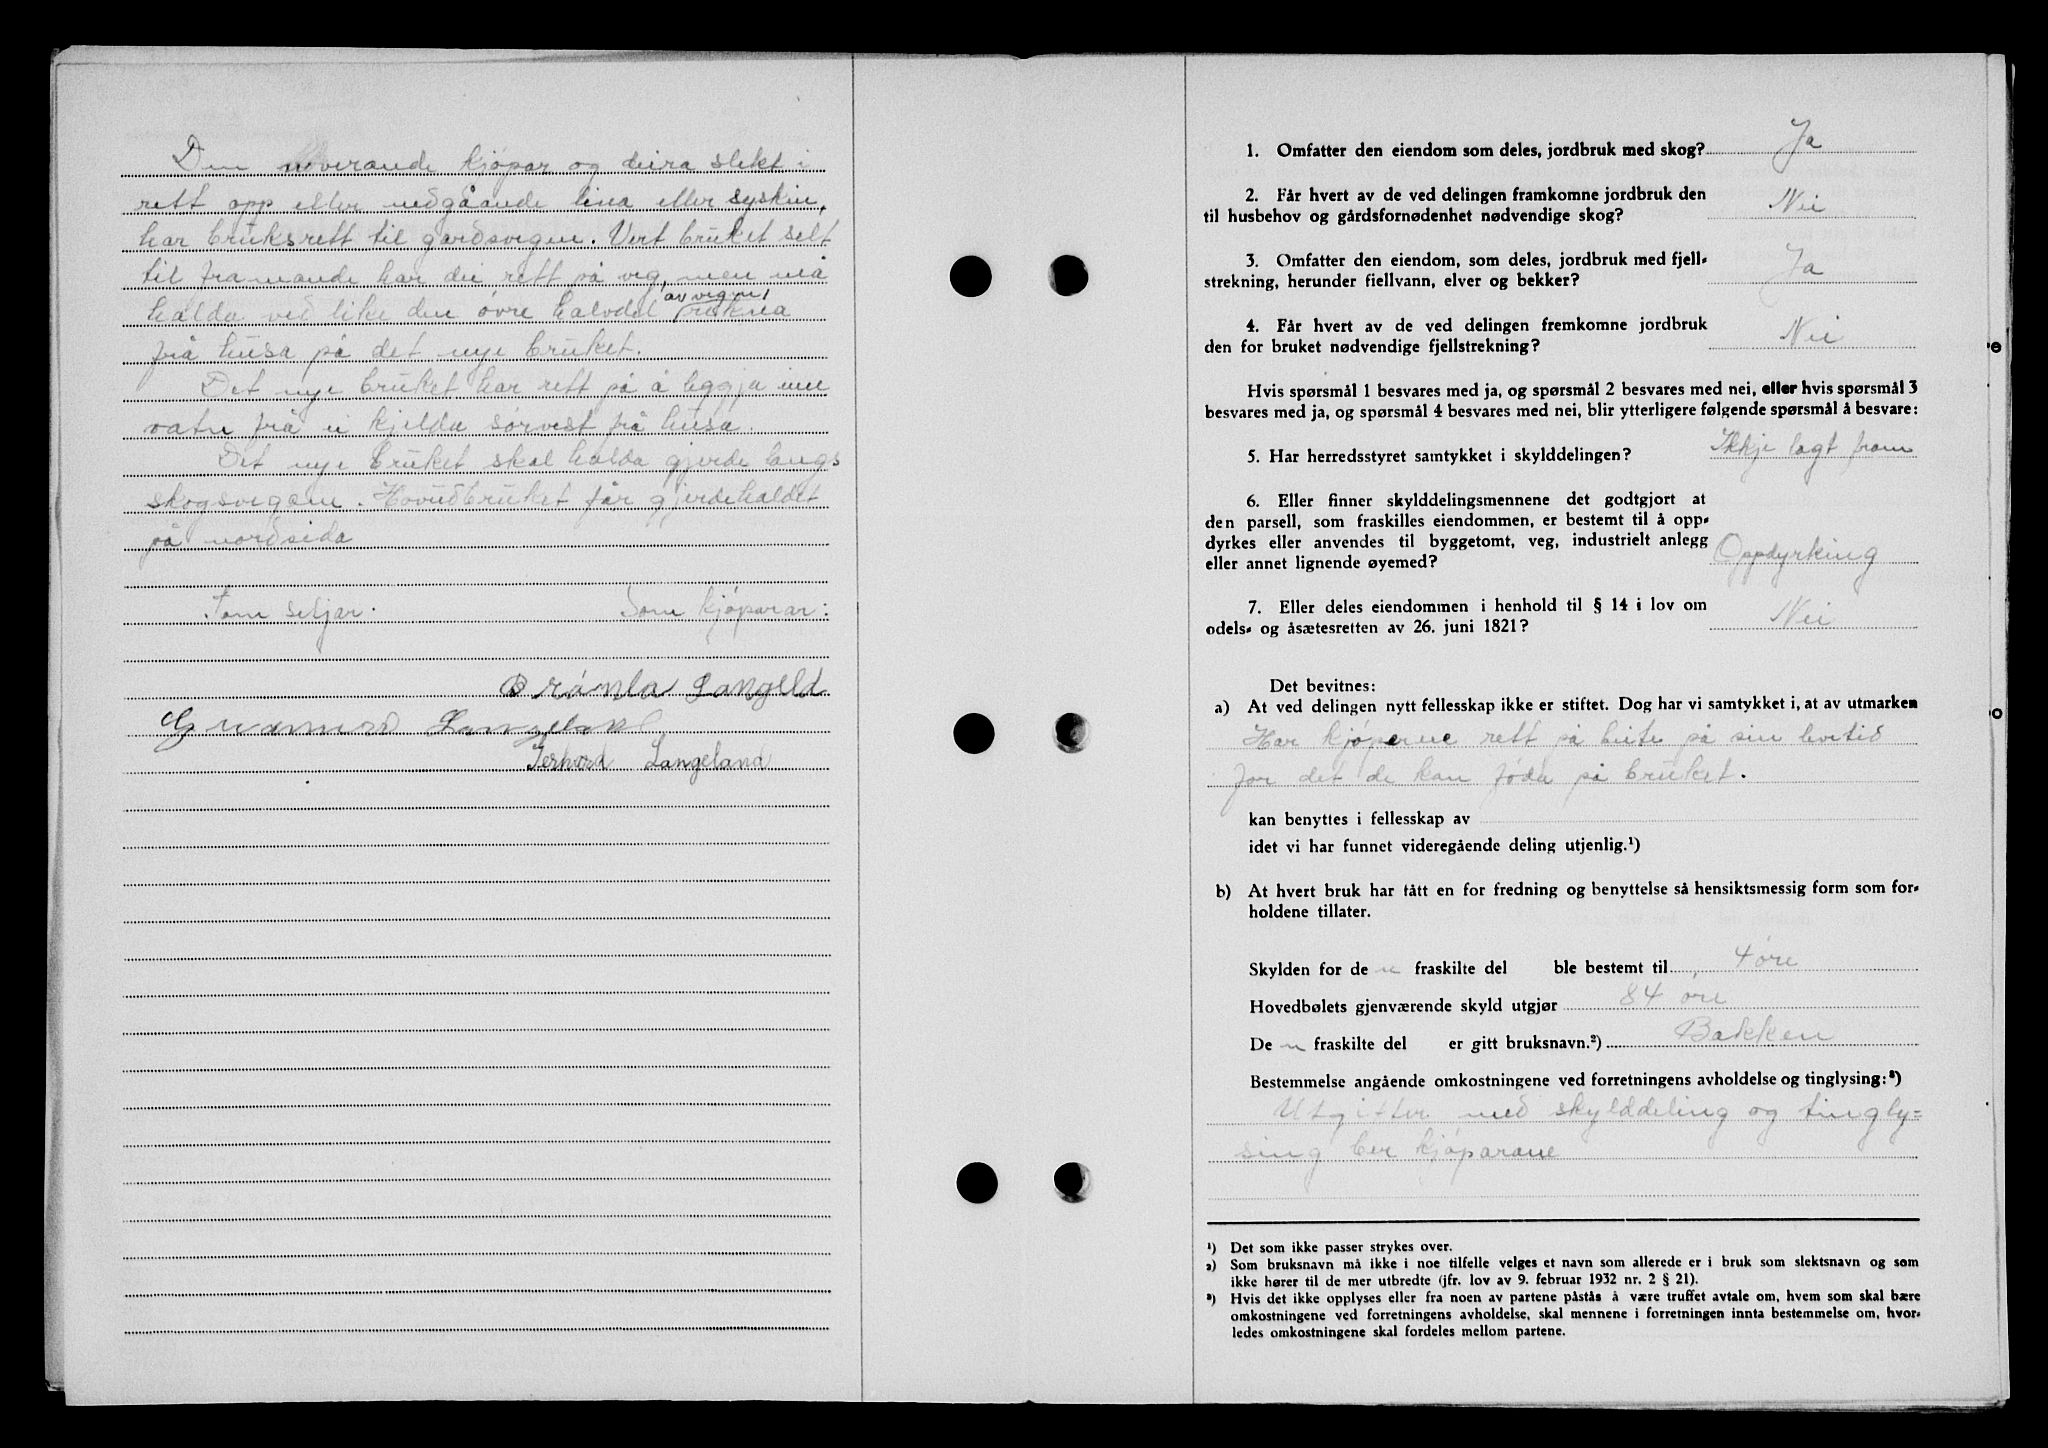 Den noverande kjøpar og deira slekt i
rett opp eller nedgåande lina eller syskin,
har bruksrett til gardsvegen. Vert bruket selt
til framande har dei rett på veg, men må
halda ved like den øvre halvdel av vegen, rekna
frå husa på det nye bruket.
Det nye bruket har rett på å leggja inn
vatn frå ei kjelda sørvest frå husa.
Det nye bruket skal halda gjerde langs
skogsvegen. Hovudbruket får gjerdehaldet
på nordsida
Som seljar. Som kjøparar:
Langeland
Langeland
Langeland
1. Omfatter den eiendom som deles, jordbruk med skog? Ja
2. Får hvert av de ved delingen framkomne jordbruk den
til husbehov og gårdsfornødenhet nødvendige skog? Nei
3. Omfatter den eiendom, som deles, jordbruk med fjell-
strekning, herunder fiellvann, elver og bekker? Ja
4. Får hvert av de ved delingen fremkomne jordbruk
den for bruket nødvendige fjellstrekning? Nei
Hvis spørsmål 1 besvares med ja, og spørsmål 2 besvares med nei, eller hvis spørsmål 3
besvares med ja, og spørsmål 4 besvares med nei, blir ytterligere følgende spørsmål å besvare:
5. Har herredsstyret samtykket i skylddelingen? Ikkje lagt fram
6. Eller finner skylddelingsmennene det godtgjort at
den parsell, som fraskilles eiendommen, er bestemt til å opp-
dyrkes eller anvendes til byggetomt, veg, industrielt anlegg
eller annet lignende øyemed? Oppdyrking
7. Eller deles eiendommen i henhold til § 14 i lov om
odels- og åsætesretten av 26. juni 1821? Nei
Det bevitnes:
a) At ved delingen nytt fellesskap ikke er stiftet. Dog har vi samtykket i, at av utmarken
Har kjøperne rett på beite på sin levetid
for det de kan føda på bruket.
kan benyttes i fellesskap av
idet vi har funnet videregående deling utjenlig.¹)
b) At hvert bruk har fått en for fredning og benyttelse så hensiktsmessig form som for-
holdene tillater.
Skylden for de n fraskilte del ble bestemt til 4 øre
Hovedbølets gjenværende skyld utgjør 84 øre
De n fraskilte del er gitt bruksnavn.²) Bakken
Bestemmelse angående omkostningene ved forretningens avholdelse og tinglysing:³)
Utgifter med skylddeling og tingly=
sing ber kjøparane
¹) Det som ikke passer strykes over.
²) Som bruksnavn må ikke i noe tilfelle velges et navn som allerede er i bruk som slektsnavn og som
ikke hører til de mer utbredte (jfr. lov av 9. februar 1932 nr. 2 § 21).
³) Hvis det ikke opplyses eller fra noen av partene påstås å være truffet avtale om, hvem som skal bære
omkostningene ved forretningens avholdelse, skal mennene i forretningen innta bestemmelse om, hvor-
ledes omkostningene skal fordeles mellom partene.